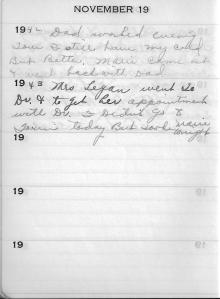 NOVEMBER 19
1942 Dad worked every
Tour & still have my cold
But Better, Marie came out
& went back with Dad
1943 Mrs Legan went to
Dr. & to get her appointment
with Dr. I Didn't go to
town today But
Marie
tonight
19
19
19